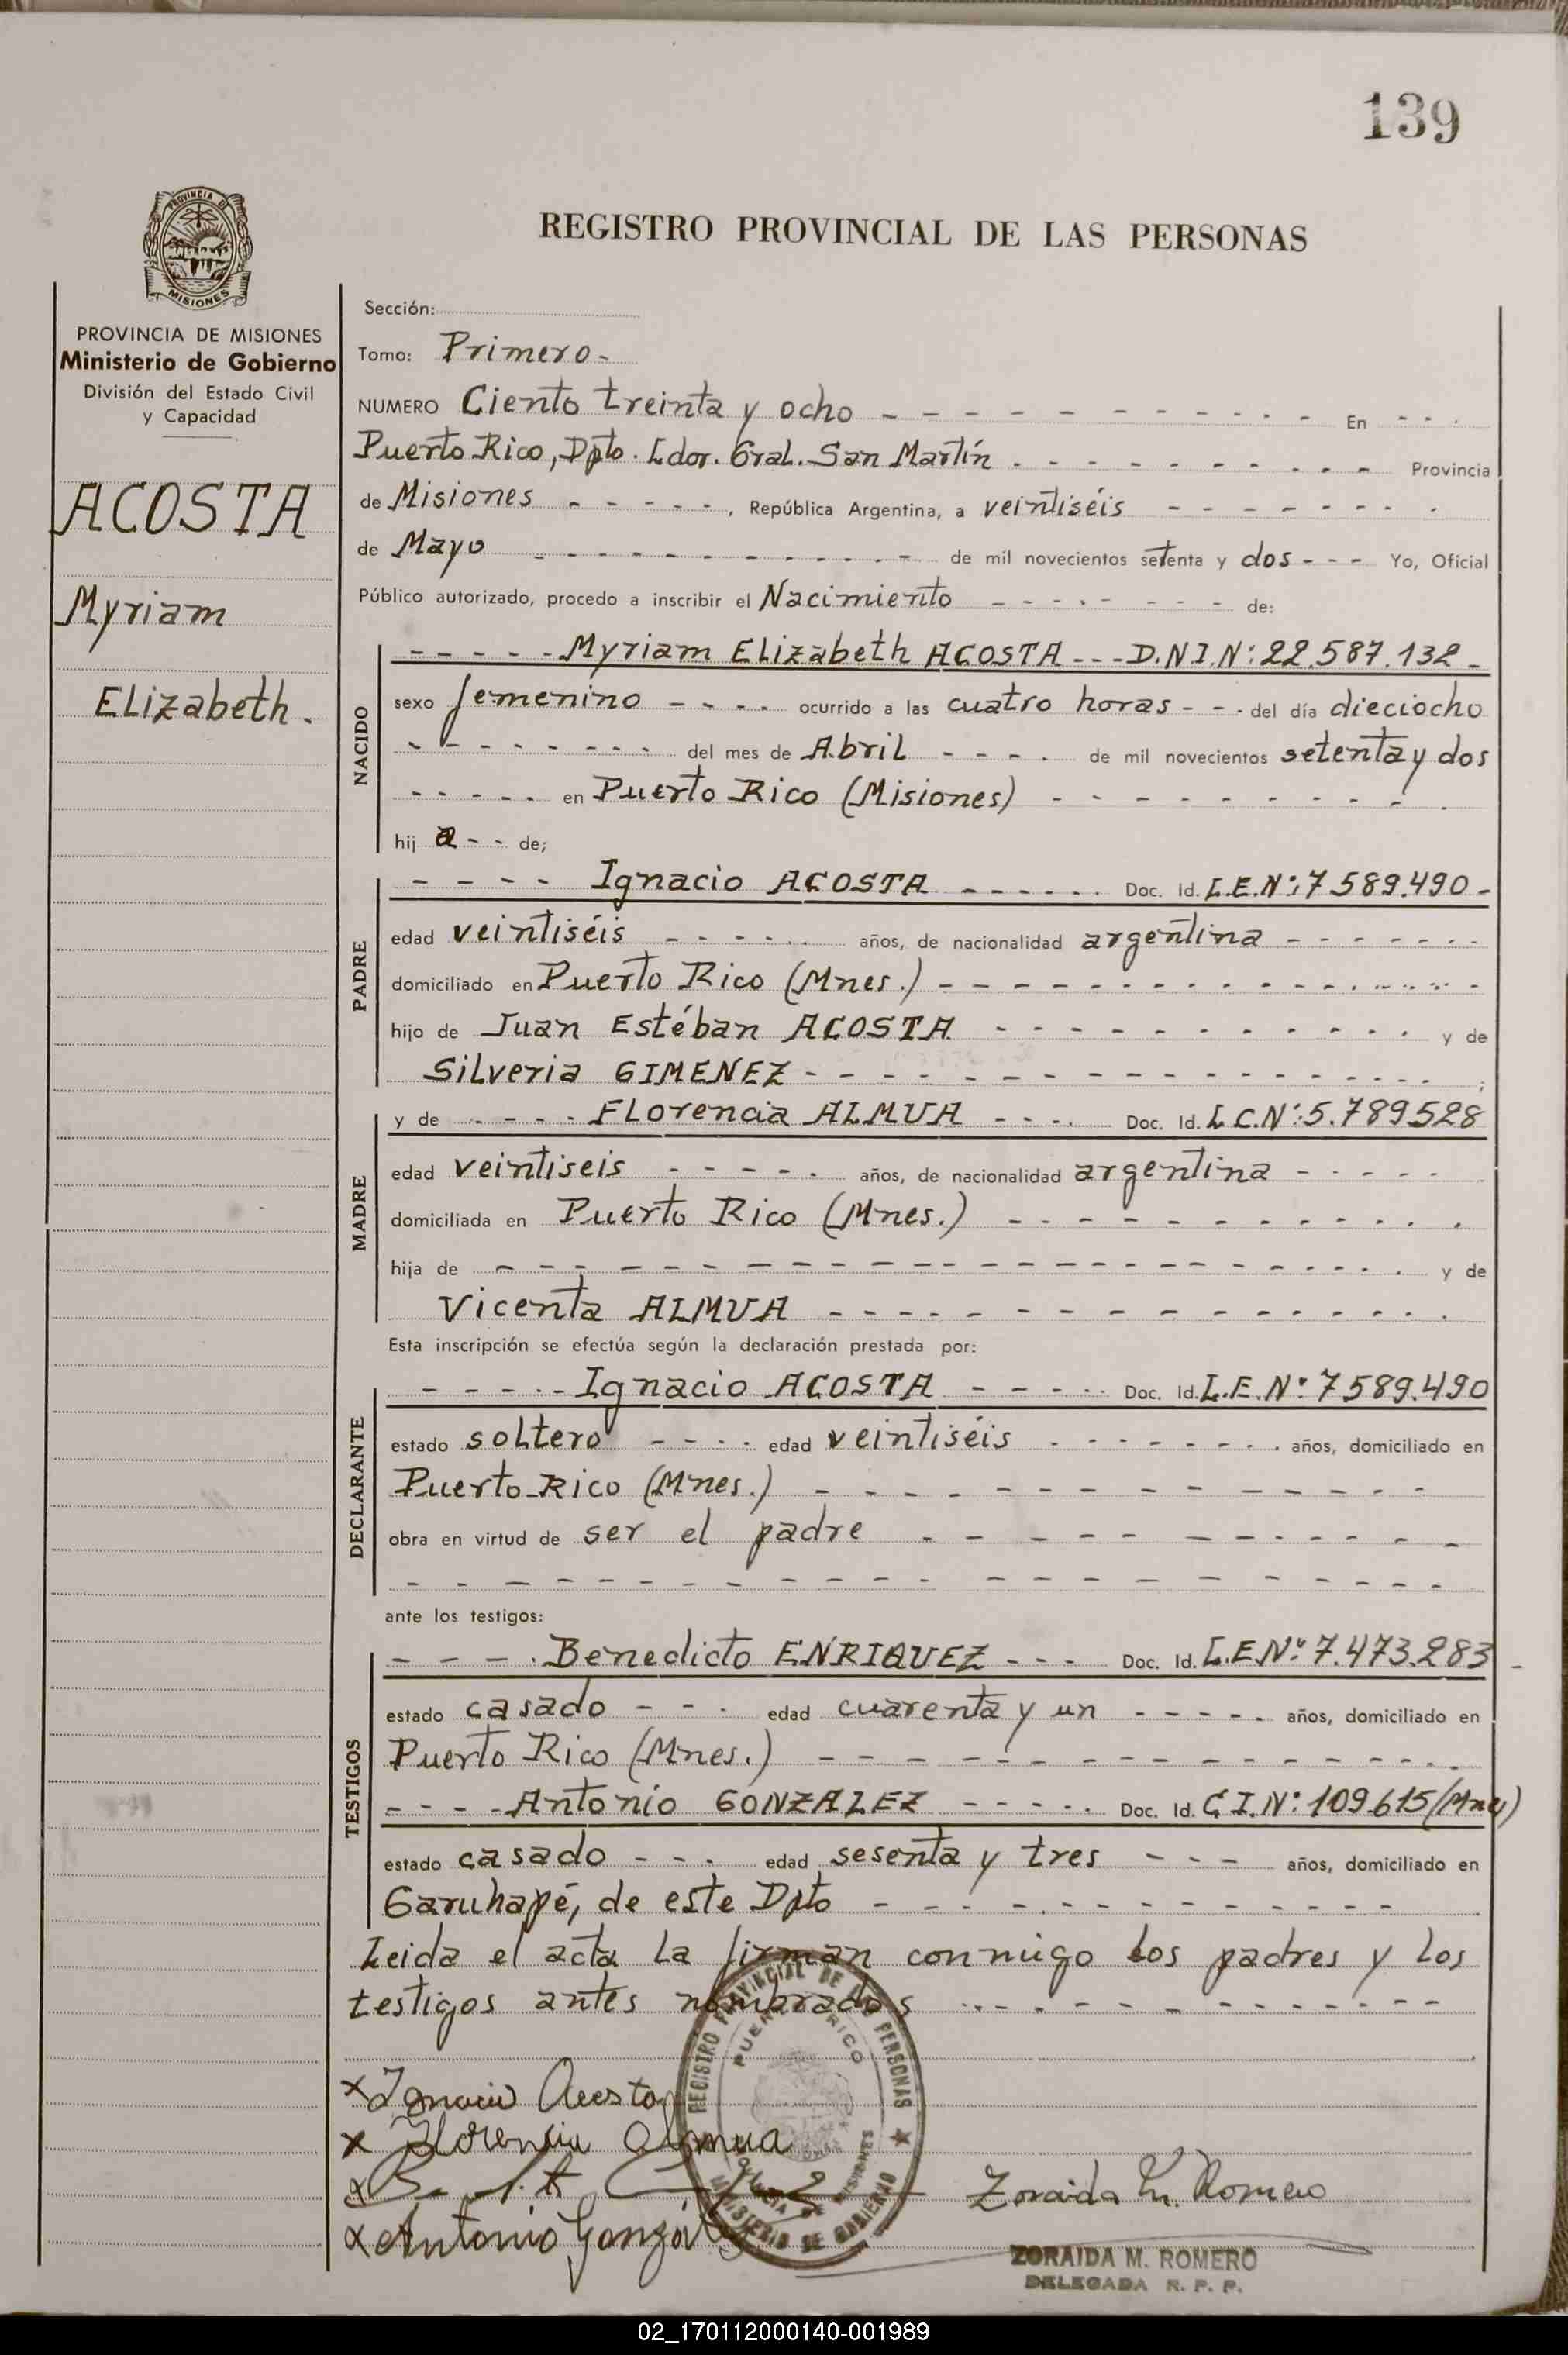 139
PROVINCIA DE
MISIONES
REGISTRO PROVINCIAL DE LAS PERSONAS
PROVINCIA DE MISIONES
Ministerio de Gobierno
División del Estado Civil
y Capacidad
ACOSTA
Myriam
Elizabeth.
Sección:
Tomo: Primero-
NUMERO Ciento treinta y ocho - - - - - - - - - - En - - -
Puerto Rico, Dpto. Ldor. Gral. San Martín - - - - - - - - - Provincia
de Misiones - - - - -, República Argentina, a veintiséis - - - - - - -
de Mayo - - - - - - - - - de mil novecientos setenta y dos - - - Yo, Oficial
Público autorizado, procedo a inscribir el Nacimiento - - - - - - - de:
NACIDO
- - - - - Myriam Elizabeth ACOSTA - - - D.N.I.Nº: 22.587.132 -
sexo femenino - - - - ocurrido a las cuatro horas - - - del día dieciocho
- - - - - - - - del mes de Abril - - - - de mil novecientos setenta y dos
- - - - - en Puerto Rico (Misiones) - - - - - - - - -
hij a - - de;
PADRE
- - - - Ignacio ACOSTA - - - - - - Doc. Id. L.E.Nº: 7.589.490 -
edad veintiséis - - - - - años, de nacionalidad argentina - - - - - - -
domiciliado en Puerto Rico (Mnes.) - - - - - - - - - - - -
hijo de Juan Estéban ACOSTA - - - - - - - - - - y de
Silveria GIMENEZ - - - - - - - - - - - - - - - ;
MADRE
y de - - - - Florencia ALMUA - - - - Doc. Id. L.C.Nº: 5.789.528
edad veintiseis - - - - - años, de nacionalidad argentina - - - - -
domiciliada en Puerto Rico (Mnes.) - - - - - - - - - - -
hija de - - - - - - - - - - - - - - - - - - - y de
Vicenta ALMUA - - - - - - - - - - - - - -
Esta inscripción se efectúa según la declaración prestada por:
DECLARANTE
- - - - - Ignacio ACOSTA - - - - - Doc. Id. L.E.Nº 7.589.490
estado soltero - - - - edad veintiséis - - - - - - - años, domiciliado en
Puerto Rico (Mnes.) - - - - - - - - - - - - - -
obra en virtud de ser el padre - - - - - - - - - - -
- - - - - - - - - - - - - - - - - - - -
ante los testigos:
TESTIGOS
- - - - Benedicto ENRIQUEZ - - - Doc. Id. L.E.Nº 7.473.283 -
estado casado - - - edad cuarenta y un - - - - - años, domiciliado en
Puerto Rico (Mnes.) - - - - - - - - - - - - - -
- - - - Antonio GONZALEZ - - - - - Doc. Id. C.I.Nº: 109.615/(Mnes)
estado casado - - - edad sesenta y tres - - - años, domiciliado en
Garuhapé, de este Dpto - - - - - - - - - - - -
Leida el acta la firman conmigo los padres y los
testigos antes nombrados - - - - - - - - - - -
REGISTRO PROVINCIAL DE LAS PERSONAS
PUERTO RICO
PROVINCIA DE MISIONES
MINISTERIO DE GOBIERNO
x Ignacio Acosta
x Florencia Almua
x
x Antonio Gonzál
Zoraida M. Romero
ZORAIDA M. ROMERO
DELEGADA R. P. P.
02_170112000140-001989